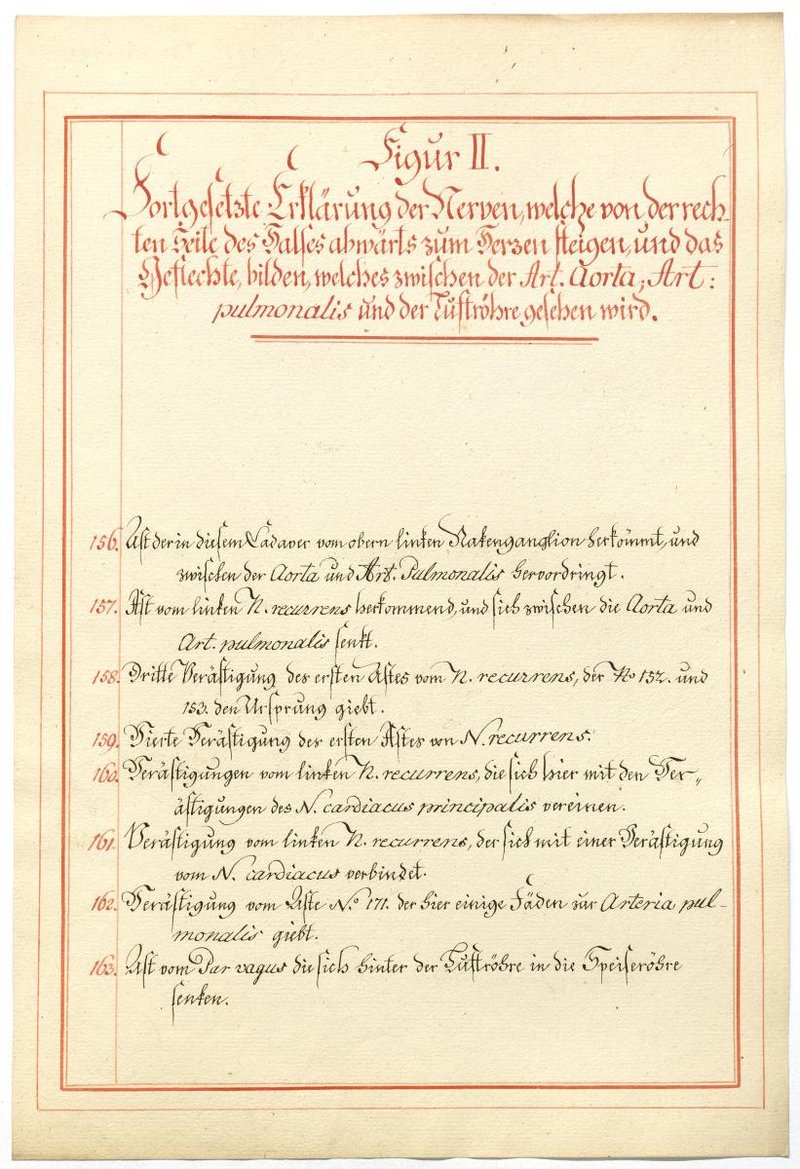 Figur II.
Fortgesetzte Erklärung der Nerven, welche von der rech-
ten Seite des Halses abwärts zum Herzen steigen, und das
Geflechte, bilden, welches zwischen der Art. Aorta, Art:
pulmonalis und der Luftröhre gesehen wird.
156. Ast der in diesem Cadaver vom obern linken Nakenganglion herkömmt, und
zwischen der Aorta und Art. Pulmonalis hervordringt.
157. Ast vom linken N. recurrens herkommend, und sich zwischen die Aorta und
Art. pulmonalis senkt.
158. Dritte Verästigung des ersten Astes vom N. recurrens, der No 152. und
153. den Ursprung giebt.
159. Vierte Verästigung des ersten Astes von N. recurrens.
160. Verästigungen vom linken N. recurrens, die sich hier mit den Ver„
ästigungen des N. cardiacus principalis vereinen.
161. Verästigung vom linken N. recurrens, der sich mit einer Verästigung
vom N. cardiacus verbindet.
162. Verästigung vom Aste No. 171. der hier einige Fäden zur Arteria pul-
monalis giebt.
163. Ast vom Par vagus die sich hinter der Luftröhre in die Speiseröhre
senken.